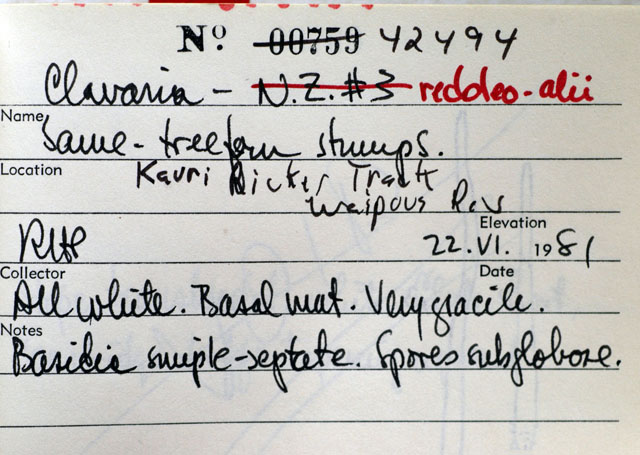 Nº 00759 42494
Clavaria - N.Z. #3 reddeo-alii
Name
Same - treefern stumps.
Location Kauri Ricker Track
Waipoua Rsv
Elevation
RHP 22.VI. 1981
Collector Date
All white. Basal mat. Very gracile.
Notes
Basidia simple-septate. Spores subglobose.